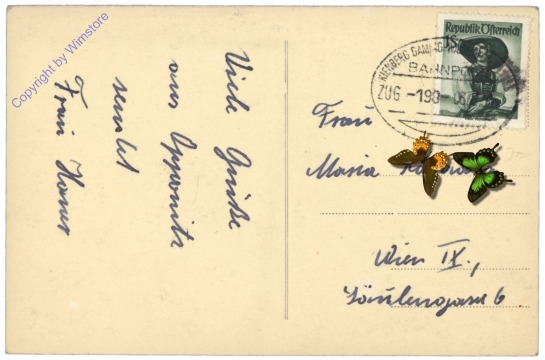 Copyright by Wimstore
Viele Grüße
aus Opponitz
sendet
Republik Österreich
BAHNPO
ZUG -190-
Frau
Maria
Wien IX.,
Säulengasse 6